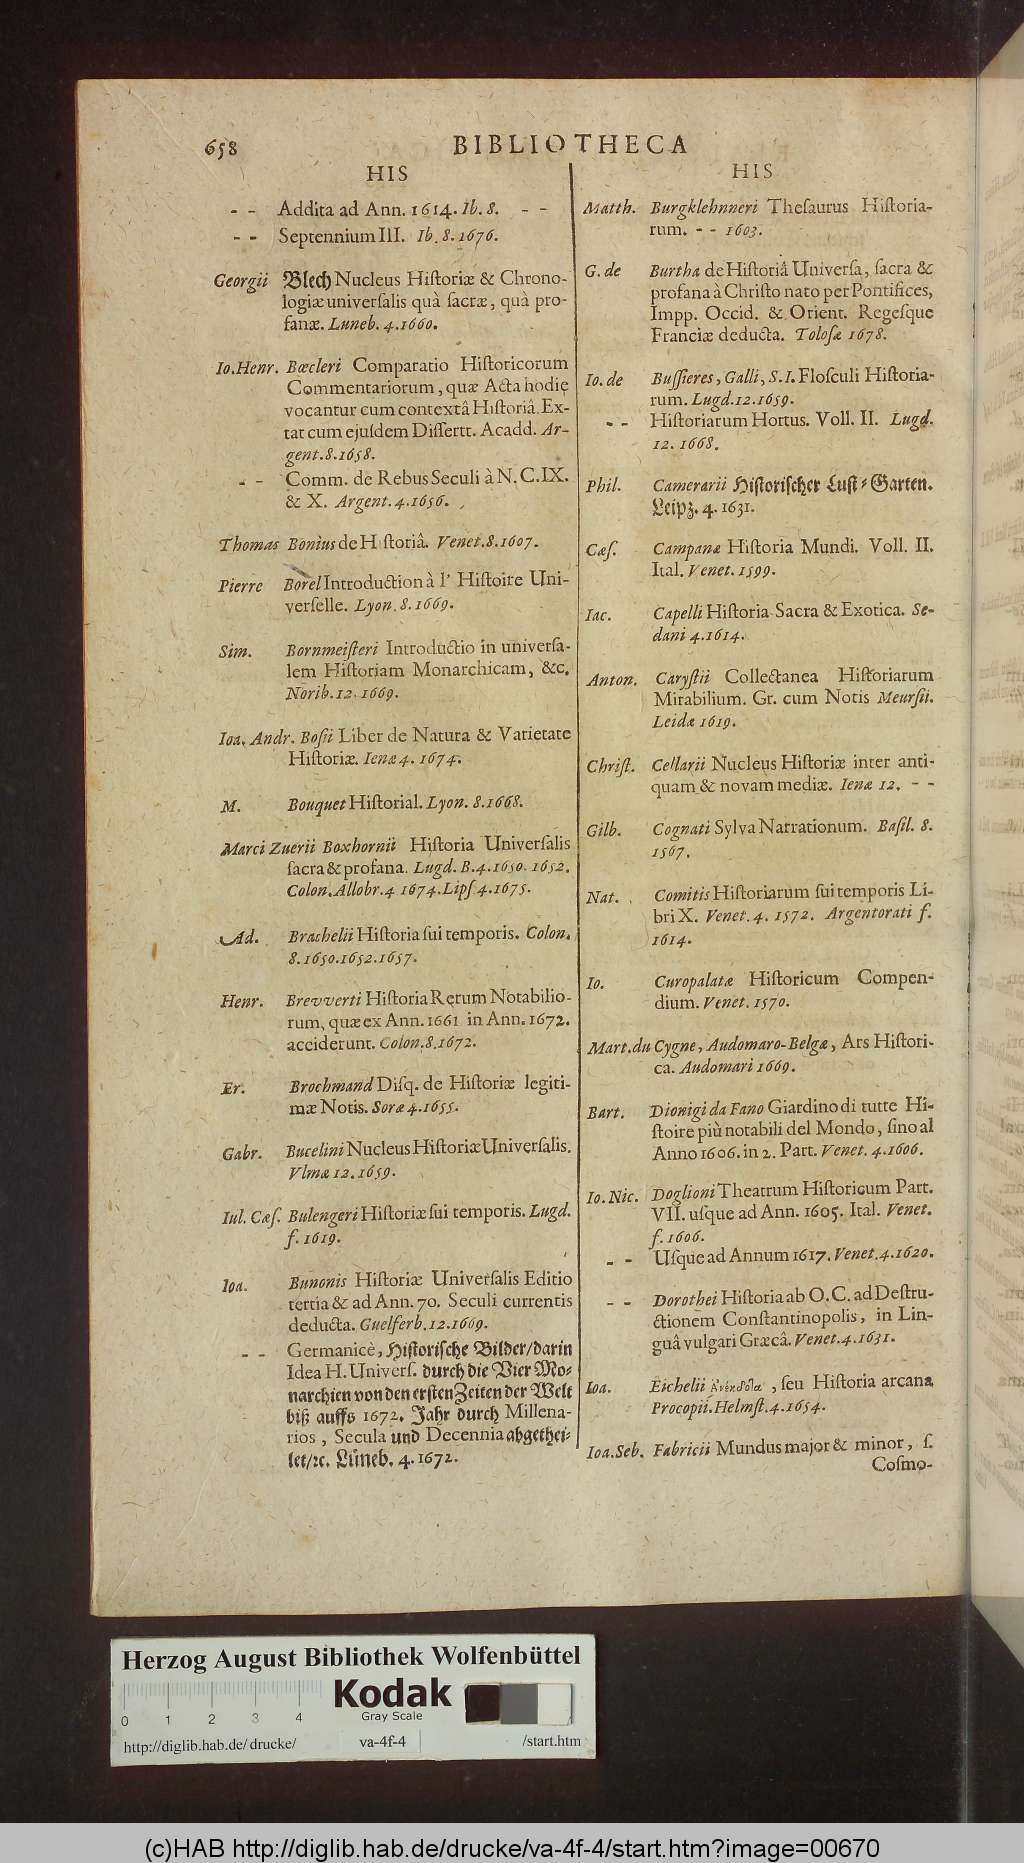 658
BIBLIOTHECA
HIS
- - Addita ad Ann. 1614. Ib. 8. - -
- - Septennium III. Ib. 8. 1676.
Georgii Blech Nucleus Hiſtoriæ & Chrono-
logiæ univerſalis quà ſacræ, quà pro-
fanæ. Luneb. 4. 1660.
Io. Henr. Bœcleri Comparatio Hiſtoricorum
Commentariorum, quæ Acta hodie
vocantur cum contextâ Hiſtoriâ. Ex-
tat cum ejuſdem Diſſertt. Acadd. Ar-
gent. 8. 1658.
- - Comm. de Rebus Seculi à N. C. IX.
& X. Argent. 4. 1656.
Thomas Bonius de Hiſtoriâ. Venet. 8. 1607.
Pierre Borel Introduction à l' Hiſtoire Uni-
verſelle. Lyon. 8. 1669.
Sim. Bornmeiſteri Introductio in univerſa-
lem Hiſtoriam Monarchicam, &c.
Norib. 12. 1669.
Ioa. Andr. Boſii Liber de Natura & Varietate
Hiſtoriæ. Ienæ 4. 1674.
M. Bouquet Hiſtorial. Lyon. 8. 1668.
Marci Zuerii Boxhornii Hiſtoria Univerſalis
ſacra & profana. Lugd. B. 4. 1650. 1652.
Colon. Allobr. 4 1674. Lipſ 4. 1675.
Ad. Brachelii Hiſtoria ſui temporis. Colon.
8. 1650. 1652. 1657.
Henr. Brevverti Hiſtoria Rerum Notabilio-
rum, quæ ex Ann. 1661 in Ann. 1672.
acciderunt. Colon. 8. 1672.
Er. Brochmand Diſq. de Hiſtoriæ legiti-
mæ Notis. Soræ 4. 1655.
Gabr. Bucelini Nucleus Hiſtoriæ Univerſalis.
Vlmæ 12. 1659.
Iul. Cæſ. Bulengeri Hiſtoriæ ſui temporis. Lugd.
f. 1619.
Ioa. Bunonis Hiſtoriæ Univerſalis Editio
tertia & ad Ann. 70. Seculi currentis
deducta. Guelferb. 12. 1669.
- - Germanicè, Hiſtoriſche Bilder/darin
Idea H. Univerſ. durch die Vier Mo-
narchien von den erſten Zeiten der Welt
biß auffs 1672. Jahr durch Millena-
rios, Secula und Decennia abgethei-
let/ꝛc. Lüneb. 4. 1672.
HIS
Matth. Burgklehnneri Theſaurus Hiſtoria-
rum. - - 1603.
G. de Burtha de Hiſtoriâ Univerſa, ſacra &
profana à Chriſto nato per Pontifices,
Impp. Occid. & Orient. Regeſque
Franciæ deducta. Toloſæ 1678.
Io. de Buſſieres, Galli, S. I. Floſculi Hiſtoria-
rum. Lugd. 12. 1659.
- - Hiſtoriarum Hortus. Voll. II. Lugd.
12. 1668.
Phil. Camerarii Hiſtoriſcher Luſt-Garten.
Leipz. 4. 1631.
Cæſ. Campanæ Hiſtoria Mundi. Voll. II.
Ital. Venet. 1599.
Iac. Capelli Hiſtoria Sacra & Exotica. Se-
dani 4. 1614.
Anton. Caryſtii Collectanea Hiſtoriarum
Mirabilium. Gr. cum Notis Meurſii.
Leidæ 1619.
Chriſt. Cellarii Nucleus Hiſtoriæ inter anti-
quam & novam mediæ. Ienæ 12. - -
Gilb. Cognati Sylva Narrationum. Baſil. 8.
1567.
Nat. Comitis Hiſtoriarum ſui temporis Li-
bri X. Venet. 4. 1572. Argentorati f.
1614.
Io. Curopalatæ Hiſtoricum Compen-
dium. Venet. 1570.
Mart. du Cygne, Audomaro-Belgæ, Ars Hiſtori-
ca. Audomari 1669.
Bart. Dionigi da Fano Giardino di tutte Hi-
ſtoire più notabili del Mondo, ſino al
Anno 1606. in 2. Part. Venet. 4. 1606.
Io. Nic. Doglioni Theatrum Hiſtoricum Part.
VII. uſque ad Ann. 1605. Ital. Venet.
f. 1606.
- - Uſque ad Annum 1617. Venet. 4. 1620.
- - Dorothei Hiſtoria ab O. C. ad Deſtru-
ctionem Conſtantinopolis, in Lin-
guâ vulgari Græcâ. Venet. 4. 1631.
Ioa. Eichelii Ἀνέκδοτα, ſeu Hiſtoria arcana
Procopii. Helmſt. 4. 1654.
Ioa. Seb. Fabricii Mundus major & minor, ſ.
Coſmo-
Herzog August Bibliothek Wolfenbüttel
Kodak
Gray Scale
0 1 2 3 4
http://diglib.hab.de/drucke/ va-4f-4 /start.htm
(c)HAB http://diglib.hab.de/drucke/va-4f-4/start.htm?image=00670